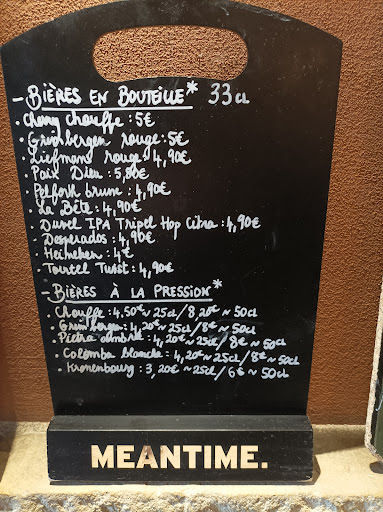 - BIÈRES EN BOUTEILLE* 33cl
• Cherry Chouffe : 5€
• Grimbergen rouge : 5€
• Liefmans rouge : 4,90€
• Paix Dieu : 5,80€
• Pelforth brune : 4,90€
• La Bête : 4,90€
• Duvel IPA Tripel Hop Citra : 4,90€
• Desperados : 4,90€
• Heineken : 4€
• Tourtel Twist : 4,90€
- BIÈRES À LA PRESSION*
• Chouffe : 4,50€ ~ 25cl / 8,20€ ~ 50cl
• Grimbergen : 4,20€ ~ 25cl / 8€ ~ 50cl
• Pietra ambrée : 4,20€ ~ 25cl / 8€ ~ 50cl
• Colomba blanche : 4,20€ ~ 25cl / 8€ ~ 50cl
• Kronenbourg : 3,20€ ~ 25cl / 6€ ~ 50cl
MEANTIME.